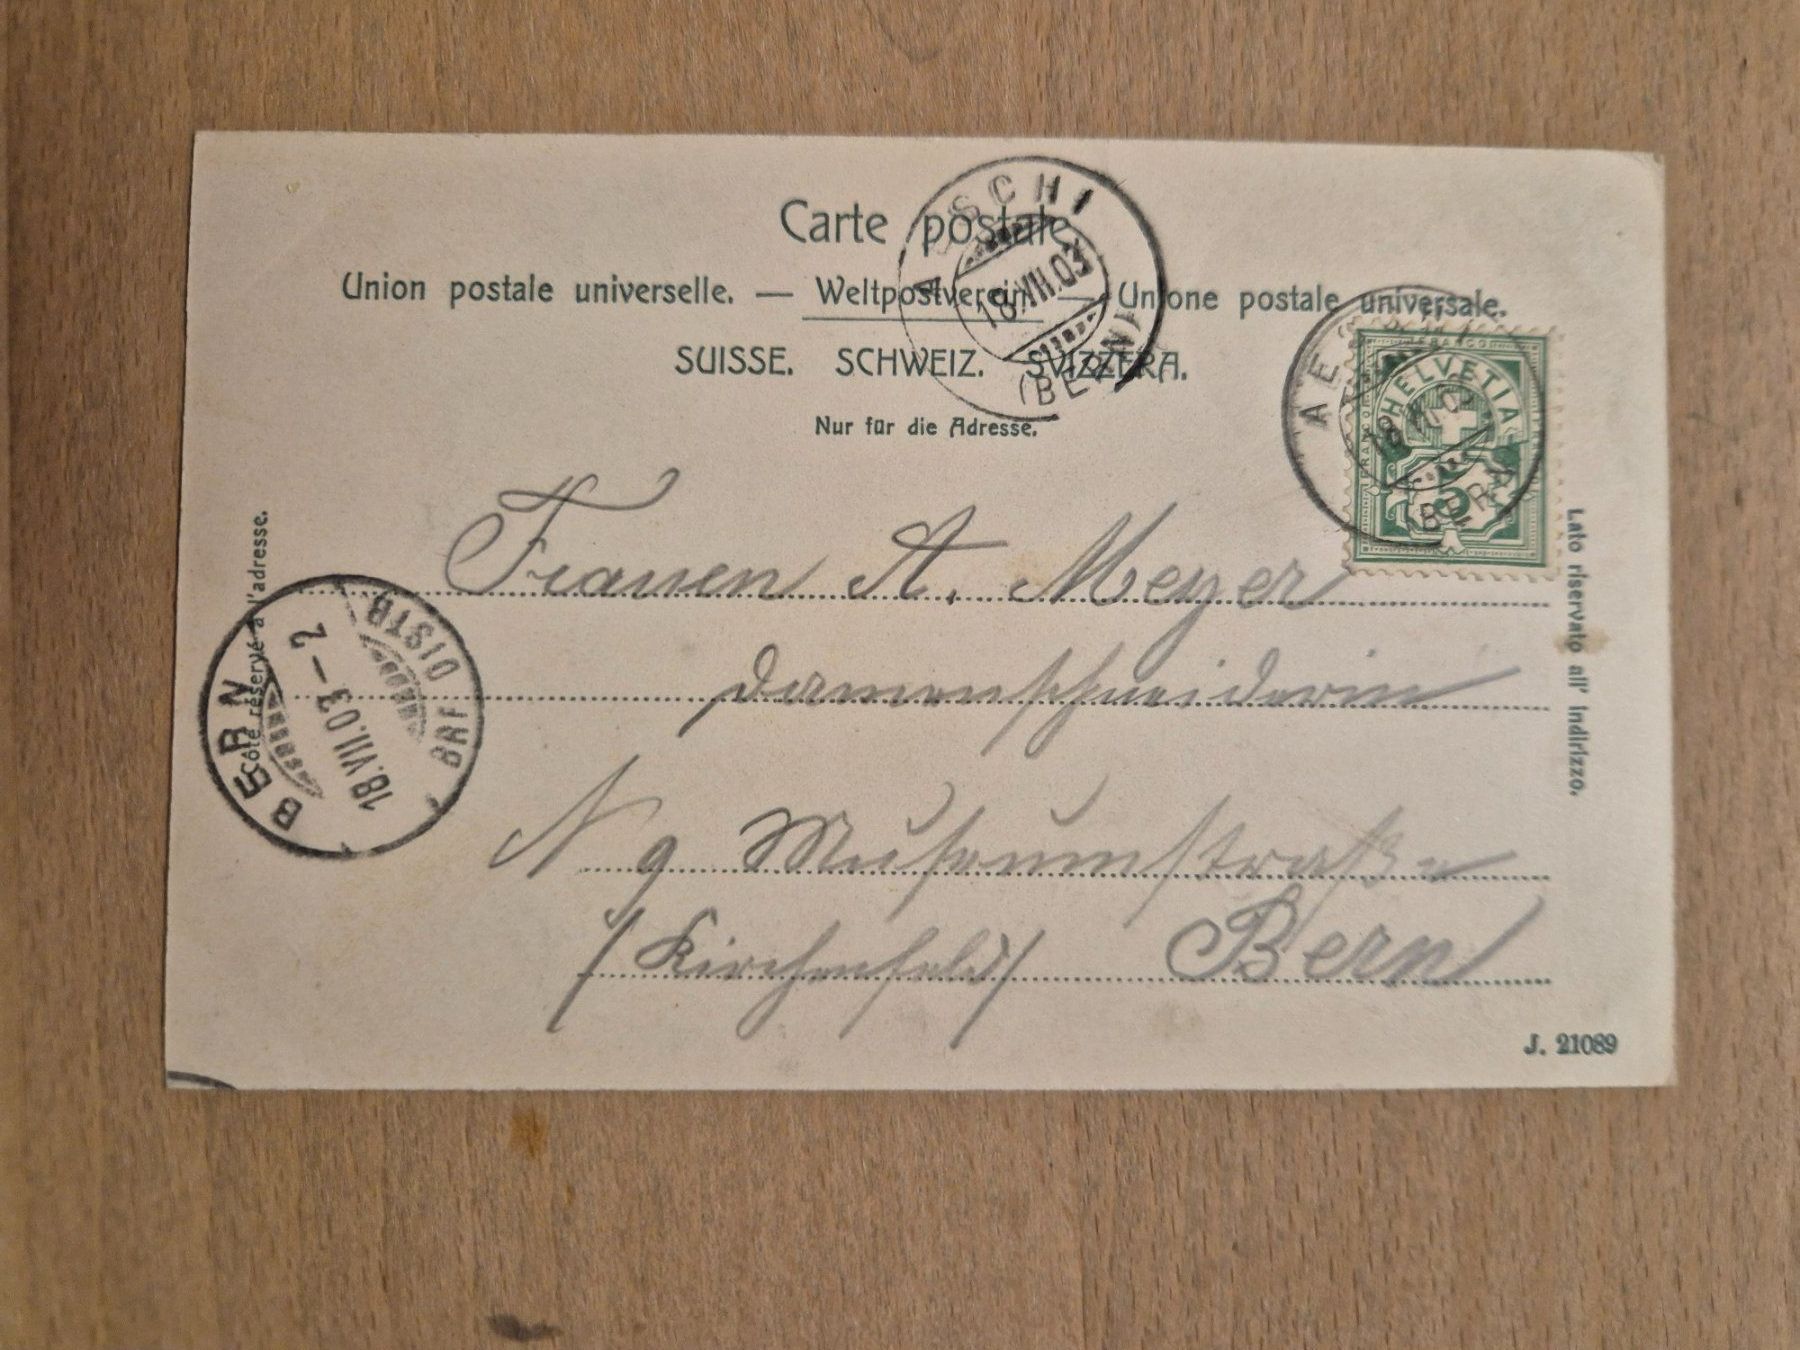 Carte postale.
Union postale universelle. — Weltpostverein — Unione postale universale.
SUISSE. SCHWEIZ. SVIZZERA.
Nur für die Adresse.
AESCHI
18.VII.03
(BERN)
AESCHI
18.VII.03
(BERN)
FRANCO
HELVETIA
5
Côté réservé à l'adresse.
Lato riservato all' indirizzo.
BERN
18.VII.03 – 2
BRF. DISTR
Frauen A. Meyer
Damenschneiderin
N 9 Museumstraße
/Kirchenfeld/ Bern
J. 21089